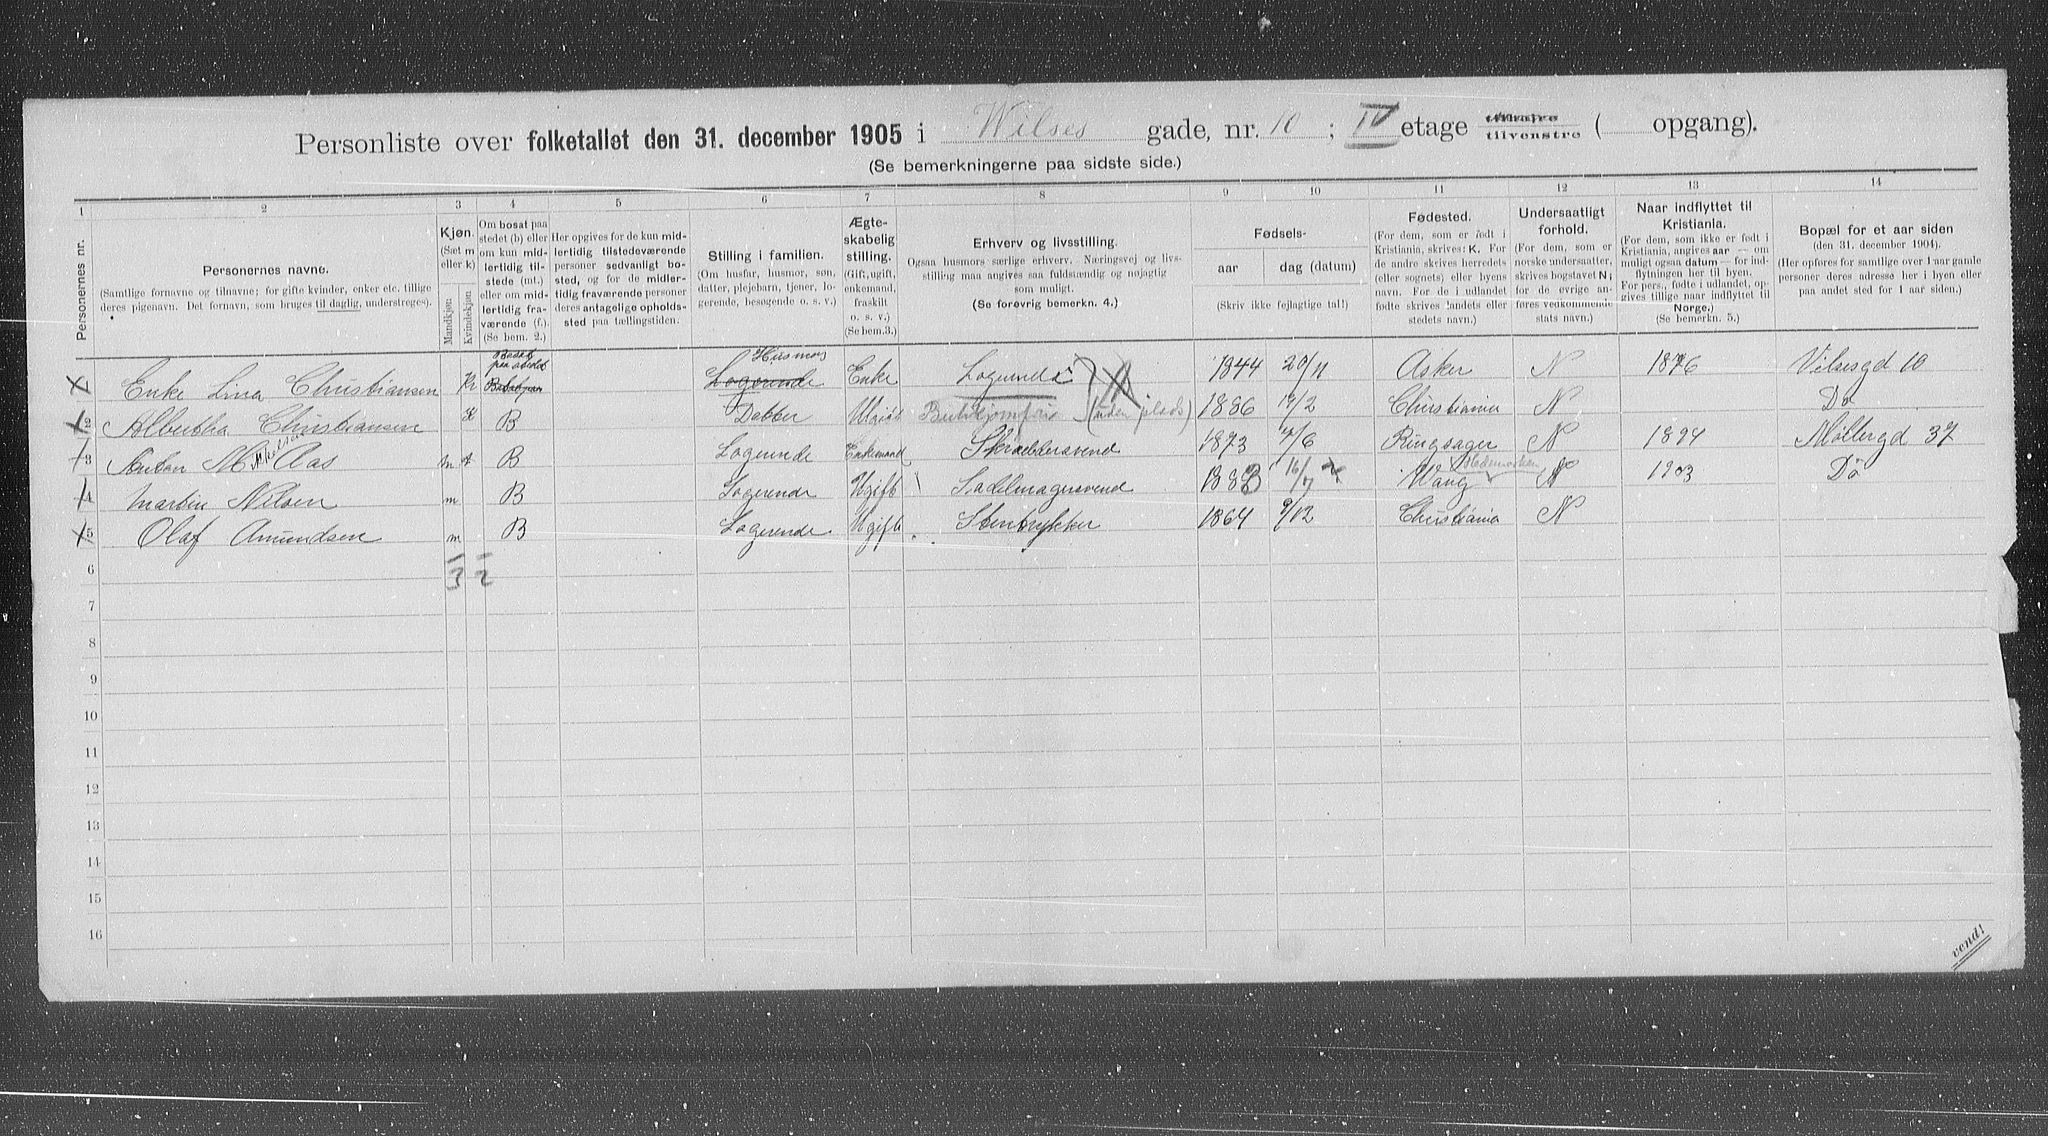 Personliste over folketallet den 31. december 1905 i Wilses gade, nr. 10 ; IV etage tilhøire tilvenstre ( opgang).
(Se bemerkningerne paa sidste side.)
1 2 3 4 5 6 7 8 9 10 11 12 13 14
Personernes nr.
Personernes navne.
(Samtlige fornavne og tilnavne; for gifte kvinder, enker etc. tillige deres pigenavn. Det fornavn, som bruges til daglig, understreges).
Kjøn.
(Sæt m eller k)
Mandkjøn.
Kvindekjøn.
Om bosat paa stedet (b) eller om kun midlertidig tilstede (mt.) eller om midlertidig fraværende (f.). (Se bem. 2.)
Her opgives for de kun midlertidig tilstedeværende personer sedvanligt bosted, og for de midlertidig fraværende personer deres antagelige opholdssted paa tællingstiden.
Stilling i familien.
(Om husfar, husmor, søn, datter, plejebarn, tjener, logerende, besøgende o. s. v.)
Ægteskabelig stilling.
(Gift, ugift, enkemand, fraskilt o. s. v.)
(Se bem. 3.)
Erhverv og livsstilling.
Ogsaa husmors særlige erhverv. Næringsvej og livsstilling maa angives saa fuldstændig og nøjagtig som muligt.
(Se forøvrig bemerkn. 4.)
Fødsels-
aar dag (datum)
(Skriv ikke fejlagtige tal!)
Fødested.
(For dem, som er født i Kristiania, skrives: K. For de andre skrives herredets (eller sognets) eller byens navn. For de i udlandet fødte skrives landets eller stedets navn.)
Undersaatligt forhold.
(For dem, som er norske undersaatter, skrives bogstavet N; for de øvrige anføres vedkommende stats navn.)
Naar indflyttet til Kristiania.
(For dem, som ikke er født i Kristiania, angives aar — om muligt ogsaa datum — for indflytningen her til byen. For pers., fødte i udlandet, opgives tillige naar indflyttet til Norge.)
(Se bemerkn. 5.)
Bopæl for et aar siden
(den 31. december 1904).
(Her opføres for samtlige over 1 aar gamle personer deres adresse her i byen eller paa andet sted for 1 aar siden.)
1 Enke Lina Christiansen K Bosat paa stedet Logerende Husmor Enke Logerende 1844 20/11 Asker N 1876 Vilsesgd 10
2 Albertha Christiansen K B Datter Ugift Butikjomfru (uden plads) 1886 17/2 Christiania N Do
3 Anton Mikelsen Aas m B Logerende Enkemand Skræddersvend 1873 /6 Ringsager N 1894 Møllergd 37
4 Martin Nilsen m B Logerende Ugift Sadelmagersvend 1883 16/7 Wang Hedemarken N 1903 Do
5 Olaf Amundsen m B Logerende Ugift Stentrykker 1864 9/12 Christiania N
3 2
6
7
8
9
10
11
12
13
14
15
16
vend!